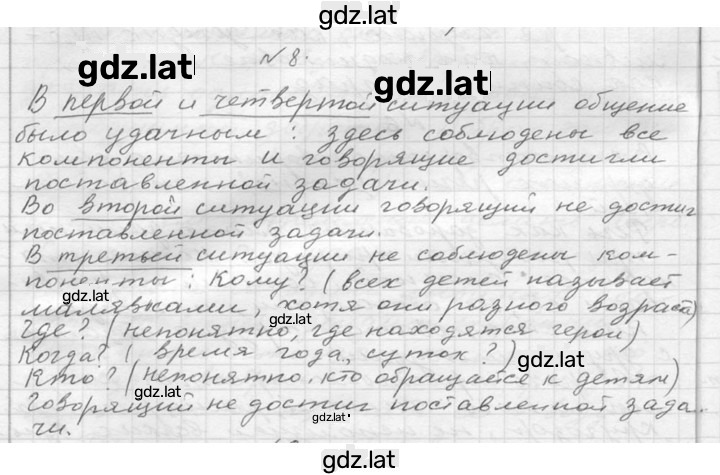 gdz.lat
N 8.
gdz.lat
gdz.lat
В первой и четвертой ситуации общение
было удачным: здесь соблюдены все
компоненты и говорящие достигли
поставленной задачи.
Во второй ситуации говорящий не достиг
поставленной задачи.
В третьей ситуации не соблюдены ком-
поненты: Кому? (всех детей называет
gdz.lat
малявками, хотя они разного возраста)
gdz.lat
Где? (непонятно, где находятся герои)
Когда? (время года, суток?)
gdz.lat
Кто? (непонятно, кто обращается к детям)
gdz.lat
Говорящий не достиг поставленной зада-
gdz.lat
чи.
gdz.lat